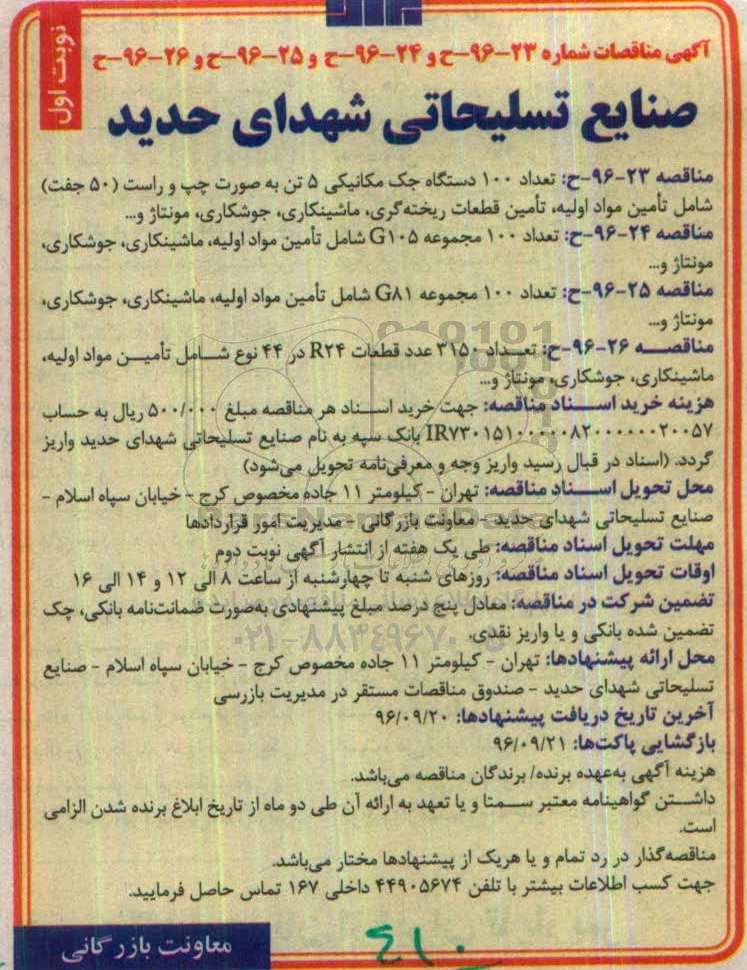 نوبت اول
آگهی مناقصات شماره ۲۳-۹۶-ح و ۲۴-۹۶-ح و ۲۵-۹۶-ح و ۲۶-۹۶-ح
صنایع تسلیحاتی شهدای حدید
مناقصه ۲۳-۹۶-ح: تعداد ۱۰۰ دستگاه جک مکانیکی ۵ تن به صورت چپ و راست (۵۰ جفت)
شامل تأمین مواد اولیه، تأمین قطعات ریخته‌گری، ماشینکاری، جوشکاری، مونتاژ و...
مناقصه ۲۴-۹۶-ح: تعداد ۱۰۰ مجموعه G۱۰۵ شامل تأمین مواد اولیه، ماشینکاری، جوشکاری،
مونتاژ و...
مناقصه ۲۵-۹۶-ح: تعداد ۱۰۰ مجموعه G۸۱ شامل تأمین مواد اولیه، ماشینکاری، جوشکاری،
مونتاژ و...
مناقصـــه ۲۶-۹۶-ح: تعـــداد ۳۱۵۰ عدد قطعات R۲۴ در ۴۴ نوع شـــامل تأمیـــن مواد اولیه،
ماشینکاری، جوشکاری، مونتاژ و...
هزینه خرید اســـناد مناقصه: جهت خرید اســـناد هر مناقصه مبلغ ۵۰۰/۰۰۰ ریال به حساب
IR۷۳۰۱۵۱۰۰۰۰۰۸۲۰۰۰۰۰۰۲۰۰۵۷ بانک سپه به نام صنایع تسلیحاتی شهدای حدید واریز
گردد. (اسناد در قبال رسید واریز وجه و معرفی‌نامه تحویل می‌شود)
محل تحویل اســـناد مناقصه: تهران - کیلومتر ۱۱ جاده مخصوص کرج - خیابان سپاه اسلام -
صنایع تسلیحاتی شهدای حدید - معاونت بازرگانی - مدیریت امور قراردادها
مهلت تحویل اسناد مناقصه: طی یک هفته از انتشار آگهی نوبت دوم
اوقات تحویل اسناد مناقصه: روزهای شنبه تا چهارشنبه از ساعت ۸ الی ۱۲ و ۱۴ الی ۱۶
تضمین شرکت در مناقصه: معادل پنج درصد مبلغ پیشنهادی به‌صورت ضمانت‌نامه بانکی، چک
تضمین شده بانکی و یا واریز نقدی.
۰۲۱-۸۸۳۴۹۶۷۰
محل ارائه پیشنهادها: تهران - کیلومتر ۱۱ جاده مخصوص کرج - خیابان سپاه اسلام - صنایع
تسلیحاتی شهدای حدید - صندوق مناقصات مستقر در مدیریت بازرسی
آخرین تاریخ دریافت پیشنهادها: ۹۶/۰۹/۲۰
بازگشایی پاکت‌ها: ۹۶/۰۹/۲۱
هزینه آگهی به‌عهده برنده/ برندگان مناقصه می‌باشد.
داشـــتن گواهینامه معتبر ســـمتا و یا تعهد به ارائه آن طی دو ماه از تاریخ ابلاغ برنده شدن الزامی
است.
مناقصه‌گذار در رد تمام و یا هریک از پیشنهادها مختار می‌باشد.
جهت کسب اطلاعات بیشتر با تلفن ۴۴۹۰۵۶۷۴ داخلی ۱۶۷ تماس حاصل فرمایید.
معاونت بازرگانی
۴۱۰